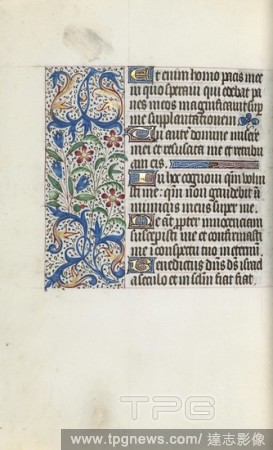 Et enim homo pacis mee
in quo speraui qui edebat pa
nes meos magnificauit sup
me supplantationem
Tu autē domine misere
mei et resuscita me et retribu
am eis.
In hoc cognoui qm̄ uolu
isti me: qm̄ non gaudebit i
nimicus meus super me.
Me aūt ppter innocentiam
suscepisti me et confirmasti
me i conspectu tuo in eternū
Benedictus dn̄s ds̄ israel
a seculo et in sclm̄ fiat fiat.
TPG
www.tpgnews.com/達志影像